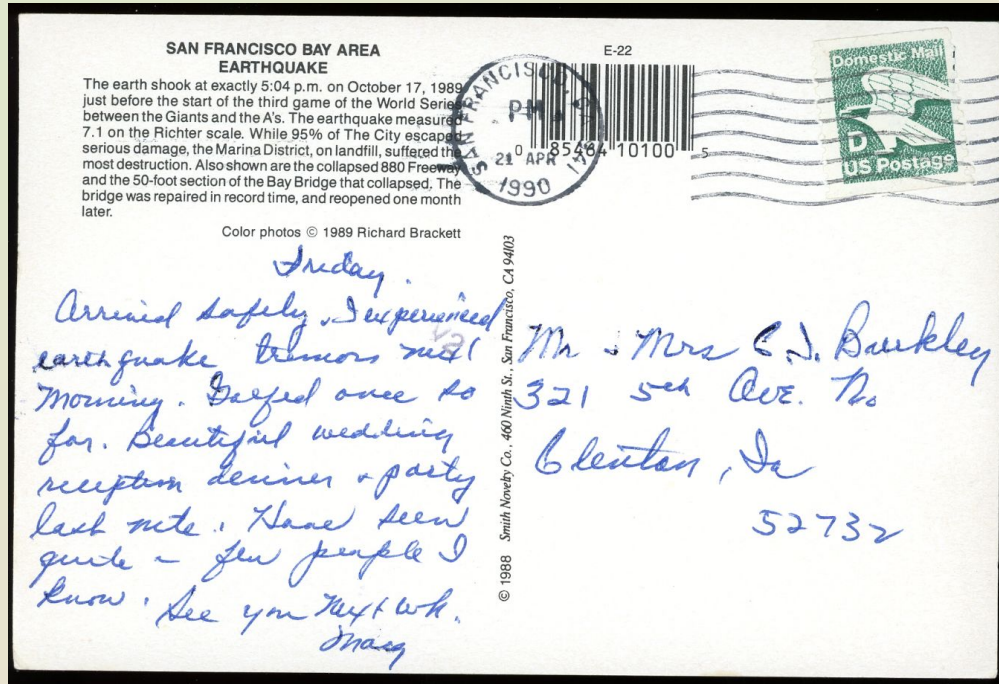 SAN FRANCISCO BAY AREA
EARTHQUAKE
The earth shook at exactly 5:04 p.m. on October 17, 1989
just before the start of the third game of the World Series
between the Giants and the A's. The earthquake measured
7.1 on the Richter scale. While 95% of The City escaped
serious damage, the Marina District, on landfill, suffered the
most destruction. Also shown are the collapsed 880 Freeway
and the 50-foot section of the Bay Bridge that collapsed. The
bridge was repaired in record time, and reopened one month
later.
Color photos © 1989 Richard Brackett
E-22
0 85464 10100 5
SAN FRANCISCO, CA 941
PM
21 APR
1990
Domestic Mail
D
US Postage
Friday.
Arrived safely. I experienced
earthquake tremors next
morning. Golfed once so
far. Beautiful wedding
reception dinner + party
last nite. Have seen
quite a few people I
know. See you next wk.
© 1988 Smith Novelty Co., 460 Ninth St., San Francisco, CA 94103
Mr & Mrs C J.
321 5th Ave. No
Clinton, Ia
52732